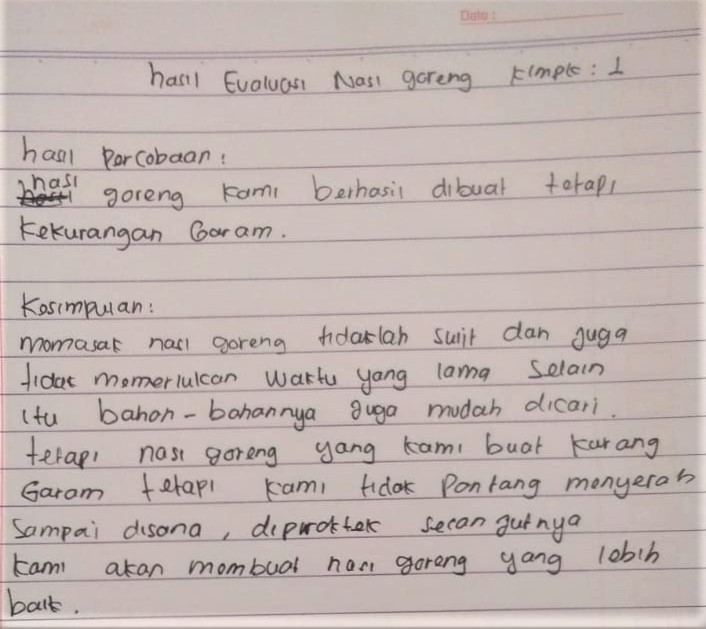 Date :
hasil Evaluasi Nasi goreng klmpk : 1
hasil Percobaan :
nasi goreng kami berhasil dibuat tetapi
kekurangan Garam.
Kesimpulan :
memasak nasi goreng tidaklah sulit dan juga
tidak memerlukan waktu yang lama selain
itu bahan - bahannya juga mudah dicari.
tetapi nasi goreng yang kami buat kurang
Garam tetapi kami tidak Pantang menyerah
Sampai disana, diproktek selan jutnya
kami akan membuat nasi goreng yang lebih
baik.